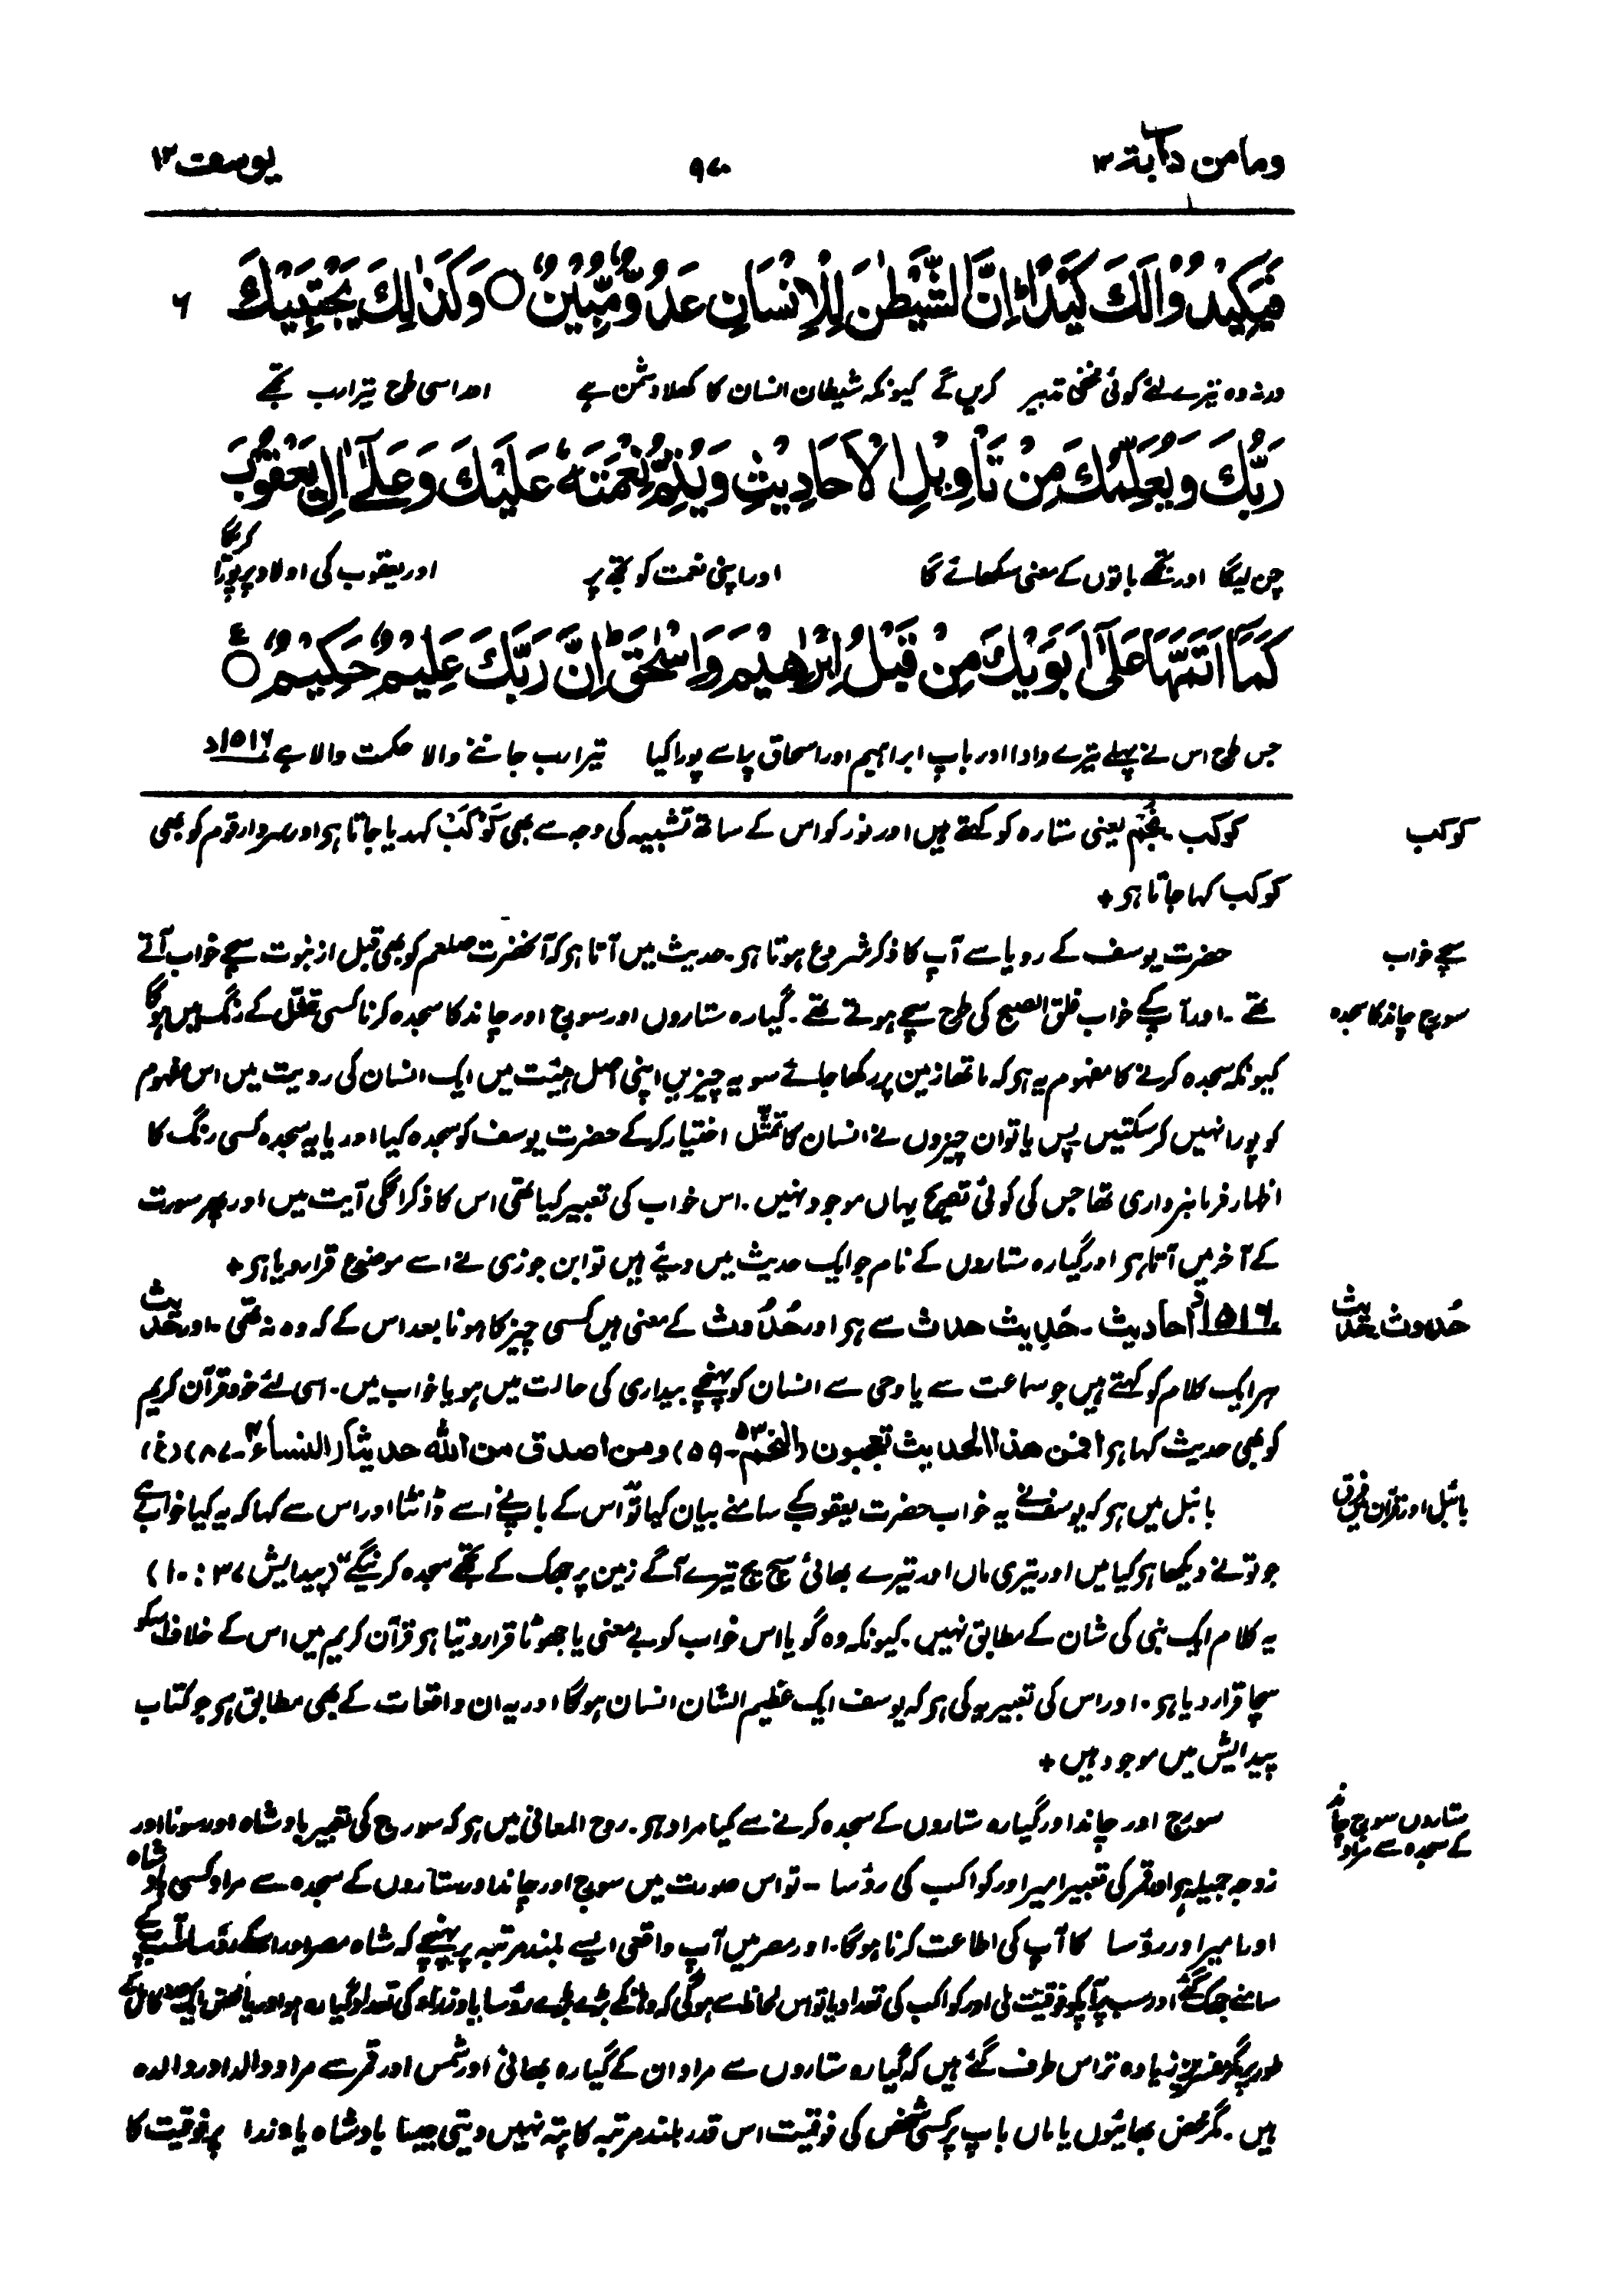 ومامن دآبة ۱۲
۹۷۰
یوسف ۱۲
فَيَكِيْدُوْا لَكَ كَيْدًا ؕ اِنَّ الشَّيْطٰنَ لِلْاِنْسَانِ عَدُوٌّ مُّبِيْنٌ ○ وَكَذٰلِكَ يَجْتَبِيْكَ
۶
ورنہ وہ تیرے لئے کوئی مخفی تدبیر کریں گے کیونکہ شیطان انسان کا کھلا دشمن ہے اور اسی طرح تیرا رب تجھے
رَبُّكَ وَيُعَلِّمُكَ مِنْ تَاْوِيْلِ الْاَحَادِيْثِ وَيُتِمُّ نِعْمَتَهٗ عَلَيْكَ وَعَلٰٓى اٰلِ يَعْقُوْبَ
چن لیگا اور تجھے باتوں کے معنی سکھائے گا اور اپنی نعمت کو تجھ پر اور یعقوب کی اولاد پر پورا کریگا
كَمَآ اَتَمَّهَا عَلٰٓى اَبَوَيْكَ مِنْ قَبْلُ اِبْرٰهِيْمَ وَاِسْحٰقَ ؕ اِنَّ رَبَّكَ عَلِيْمٌ حَكِيْمٌ ○ ع
جس طرح اس نے پہلے تیرے دادا اور باپ ابراہیم اور اسحاق پر اسے پورا کیا تیرا رب جاننے والا حکمت والا ہے ۱۵۱۶د
کوکب
کوکب ۔ نجم یعنی ستارہ کو کہتے ہیں اور نور کو اس کے ساتھ تشبیہ کی وجہ سے بھی کَوْکَبٌ کہدیا جاتا ہو اور سردار قوم کو بھی
کوکب کہا جاتا ہو +
سچے خواب
حضرت یوسف کے رویا سے آپ کا ذکر شروع ہوتا ہو ۔ حدیث میں آتا ہو کہ آنحضرت صلعم کو بھی قبل از نبوت سچے خواب آتے
سورج چاند کا سجدہ
تھے ۔ اور آپ کے خواب فلق الصبح کی طرح سچے ہوتے تھے ۔ گیارہ ستاروں اور سورج اور چاند کا سجدہ کرنا کسی تمثل کے رنگ میں ہوگا
کیونکہ سجدہ کرنے کا مفہوم یہ ہو کہ ماتھا زمین پر رکھا جائے سو یہ چیزیں اپنی اصل ہیئت میں ایک انسان کی رویت میں اس مفہوم
کو پورا نہیں کر سکتیں پس یا تو ان چیزوں نے انسان کا تمثّل اختیار کر کے حضرت یوسف کو سجدہ کیا اور یا یہ سجدہ کسی رنگ کا
اظہار فرمانبرداری تھا جس کی کوئی تصریح یہاں موجود نہیں ۔ اس خواب کی تعبیر کیا تھی اس کا ذکر اگلی آیت میں اور پھر سورت
کے آخر میں آتا ہو اور گیارہ ستاروں کے نام جو ایک حدیث میں دیئے ہیں تو ابن جوزی نے اسے موضوع قرار دیا ہو +
حُدوث ۔ حدیث
۱۵۱۶د احادیث ۔ حَدِیث حدث سے ہو اور حُدُوث کے معنی ہیں کسی چیز کا ہونا بعد اس کے کہ وہ نہ تھی ۔ اور حدیث
ہر ایک کلام کو کہتے ہیں جو سماعت سے یا وحی سے انسان کو پہنچے بیداری کی حالت میں ہو یا خواب میں ۔ اسی لئے خود قرآن کریم
کو بھی حدیث کہا ہو افمن ھذا الحدیث تعجبون (النجم ۵۳۔۵۹) ومن اصدق من اللہ حدیثا (النساء ۴۔۸۷) (غ)
بائبل اور قرآن میں فرق
بائبل میں ہو کہ یوسف نے یہ خواب حضرت یعقوب کے سامنے بیان کیا تو "اس کے باپ نے اسے ڈانٹا اور اس سے کہا کہ یہ کیا خواب ہے
جو تو نے دیکھا ہو کیا میں اور تیری ماں اور تیرے بھائی سچ مچ تیرے آگے زمین پر جھک کے تجھے سجدہ کرینگے" (پیدایش ۳۷ : ۱۰)
یہ کلام ایک نبی کی شان کے مطابق نہیں ۔ کیونکہ وہ گویا اس خواب کو بے معنی یا جھوٹا قرار دیتا ہو قرآن کریم میں اس کے خلاف اسکو
سچا قرار دیا ہو ۔ اور اس کی تعبیر یہ کی ہو کہ یوسف ایک عظیم الشان انسان ہوگا اور یہ ان واقعات کے بھی مطابق ہو جو کتاب
پیدایش میں موجود ہیں +
ستاروں سورج چاند
کے سجدہ سے مراد
سورج اور چاند اور گیارہ ستاروں کے سجدہ کرنے سے کیا مراد ہو ۔ روح المعانی میں ہو کہ سورج کی تعبیر بادشاہ اور سونا اور
زوجہ جمیلہ ہو اور قمر کی تعبیر امیر اور کواکب کی رؤسا ۔ تو اس صورت میں سورج اور چاند اور ستاروں کے سجدہ سے مراد کسی بادشاہ
اور امیر اور رؤسا کا آپ کی اطاعت کرنا ہوگا ۔ اور مصر میں آپ واقعی ایسے بلند مرتبہ پر پہنچے کہ شاہ مصر اور اسکے رؤسا سب آپ کے
سامنے جھک گئے اور سب پر آپ کو فوقیت ملی اور کواکب کی تعداد یا تو اس لحاظ سے ہوگی کہ وہاں کے بڑے بڑے رؤسا یا وزراء کی تعداد گیارہ ہو اور یا محض ایک عدد کامل کے
طور پر مگر مفسرین زیادہ تر اس طرف گئے ہیں کہ گیارہ ستاروں سے مراد ان کے گیارہ بھائی اور شمس اور قمر سے مراد والد اور والدہ
ہیں ۔ مگر محض بھائیوں یا ماں باپ پر کسی شخص کی فوقیت اس قدر بلند مرتبہ کا پتہ نہیں دیتی جیسا بادشاہ یا وزرا پر فوقیت کا